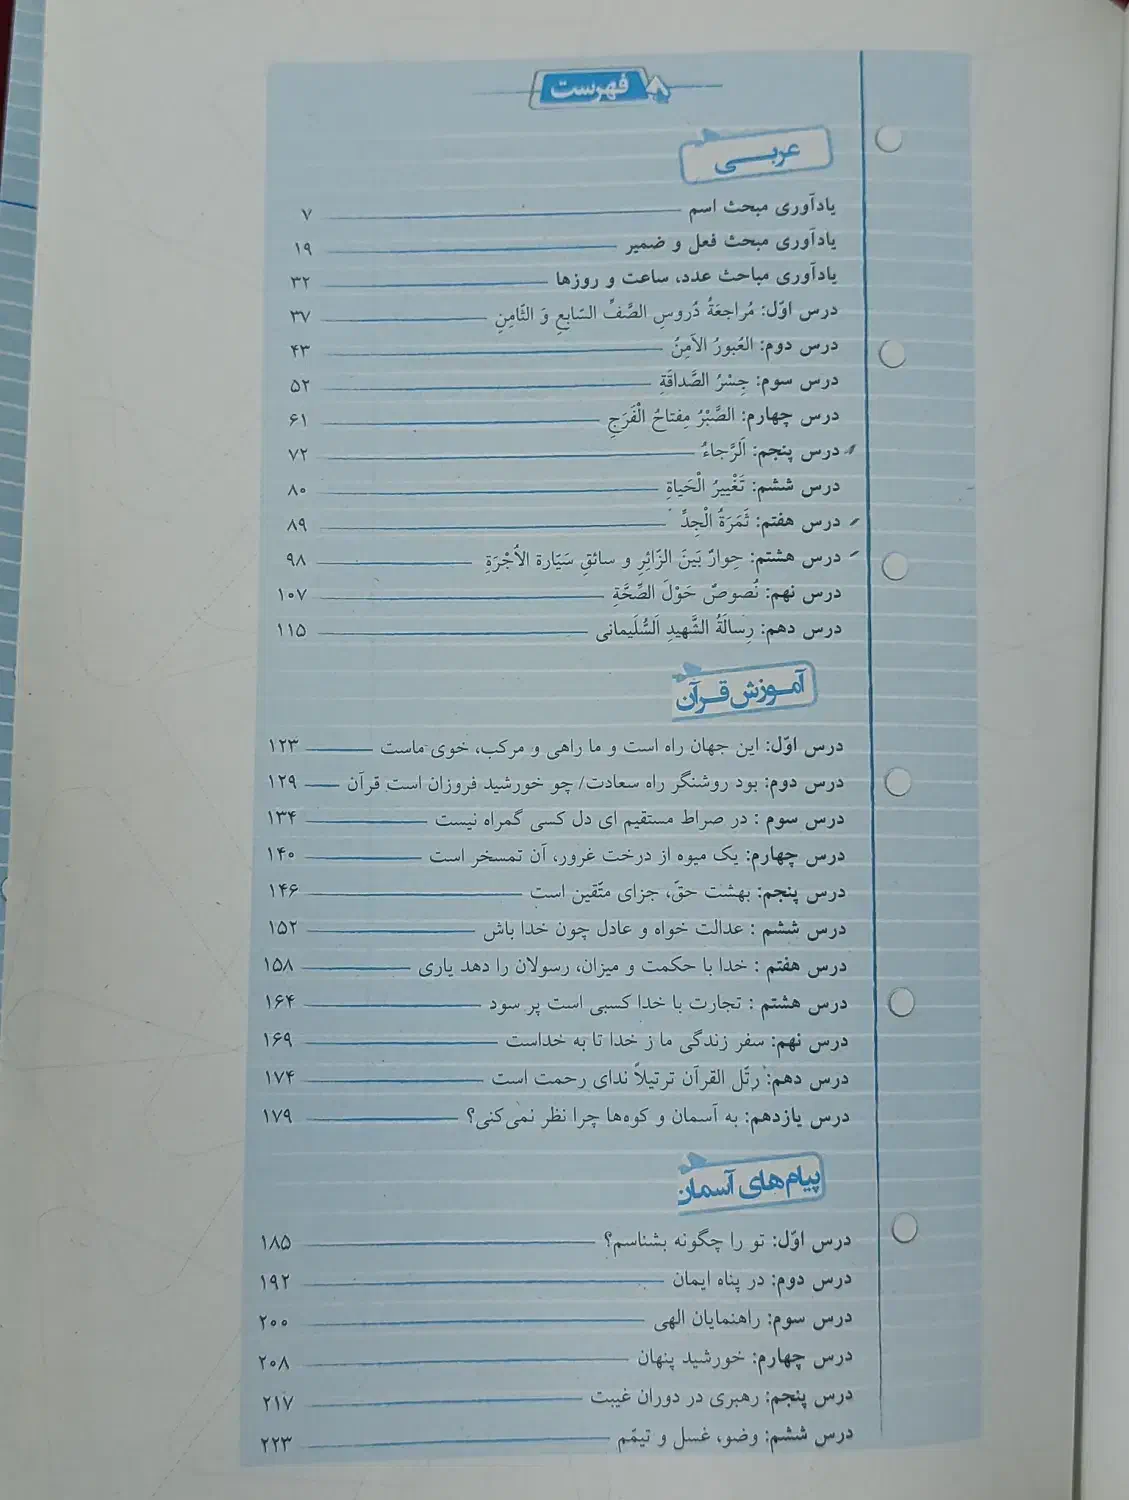 فهرست
عربی
یادآوری مبحث اسم ۷
یادآوری مبحث فعل و ضمیر ۱۹
یادآوری مباحث عدد، ساعت و روزها ۳۲
درس اوّل: مُراجَعَةُ دُروسِ الصَّفِّ السّابِعِ وَ الثّامِنِ ۳۷
درس دوم: العُبورُ الآمِنُ ۴۳
درس سوم: جِسْرُ الصَّداقَةِ ۵۲
درس چهارم: الصَّبْرُ مِفتاحُ الْفَرَجِ ۶۱
درس پنجم: اَلرَّجاءُ ۷۲
درس ششم: تَغْییرُ الْحَیاةِ ۸۰
درس هفتم: ثَمَرَةُ الْجِدِّ ۸۹
درس هشتم: حِوارٌ بَینَ الزّائِرِ و سائقِ سَیّارة الأُجْرَةِ ۹۸
درس نهم: نُصوصٌ حَوْلَ الصِّحَّةِ ۱۰۷
درس دهم: رِسالَةُ الشَّهیدِ اَلسُّلَیمانی ۱۱۵
آموزش قرآن
درس اوّل: این جهان راه است و ما راهی و مرکب، خوی ماست ۱۲۳
درس دوم: بود روشنگر راه سعادت/ چو خورشید فروزان است قرآن ۱۲۹
درس سوم : در صراط مستقیم ای دل کسی گمراه نیست ۱۳۴
درس چهارم: یک میوه از درخت غرور، آن تمسخر است ۱۴۰
درس پنجم: بهشت حقّ، جزای متّقین است ۱۴۶
درس ششم : عدالت خواه و عادل چون خدا باش ۱۵۲
درس هفتم : خدا با حکمت و میزان، رسولان را دهد یاری ۱۵۸
درس هشتم : تجارت با خدا کسبی است پر سود ۱۶۴
درس نهم: سفر زندگی ما ز خدا تا به خداست ۱۶۹
درس دهم: رتّل القرآن ترتیلاً ندای رحمت است ۱۷۴
درس یازدهم: به آسمان و کوه‌ها چرا نظر نمی‌کنی؟ ۱۷۹
پیام‌های آسمان
درس اوّل: تو را چگونه بشناسم؟ ۱۸۵
درس دوم: در پناه ایمان ۱۹۲
درس سوم: راهنمایان الهی ۲۰۰
درس چهارم: خورشید پنهان ۲۰۸
درس پنجم: رهبری در دوران غیبت ۲۱۷
درس ششم: وضو، غسل و تیمّم ۲۲۳